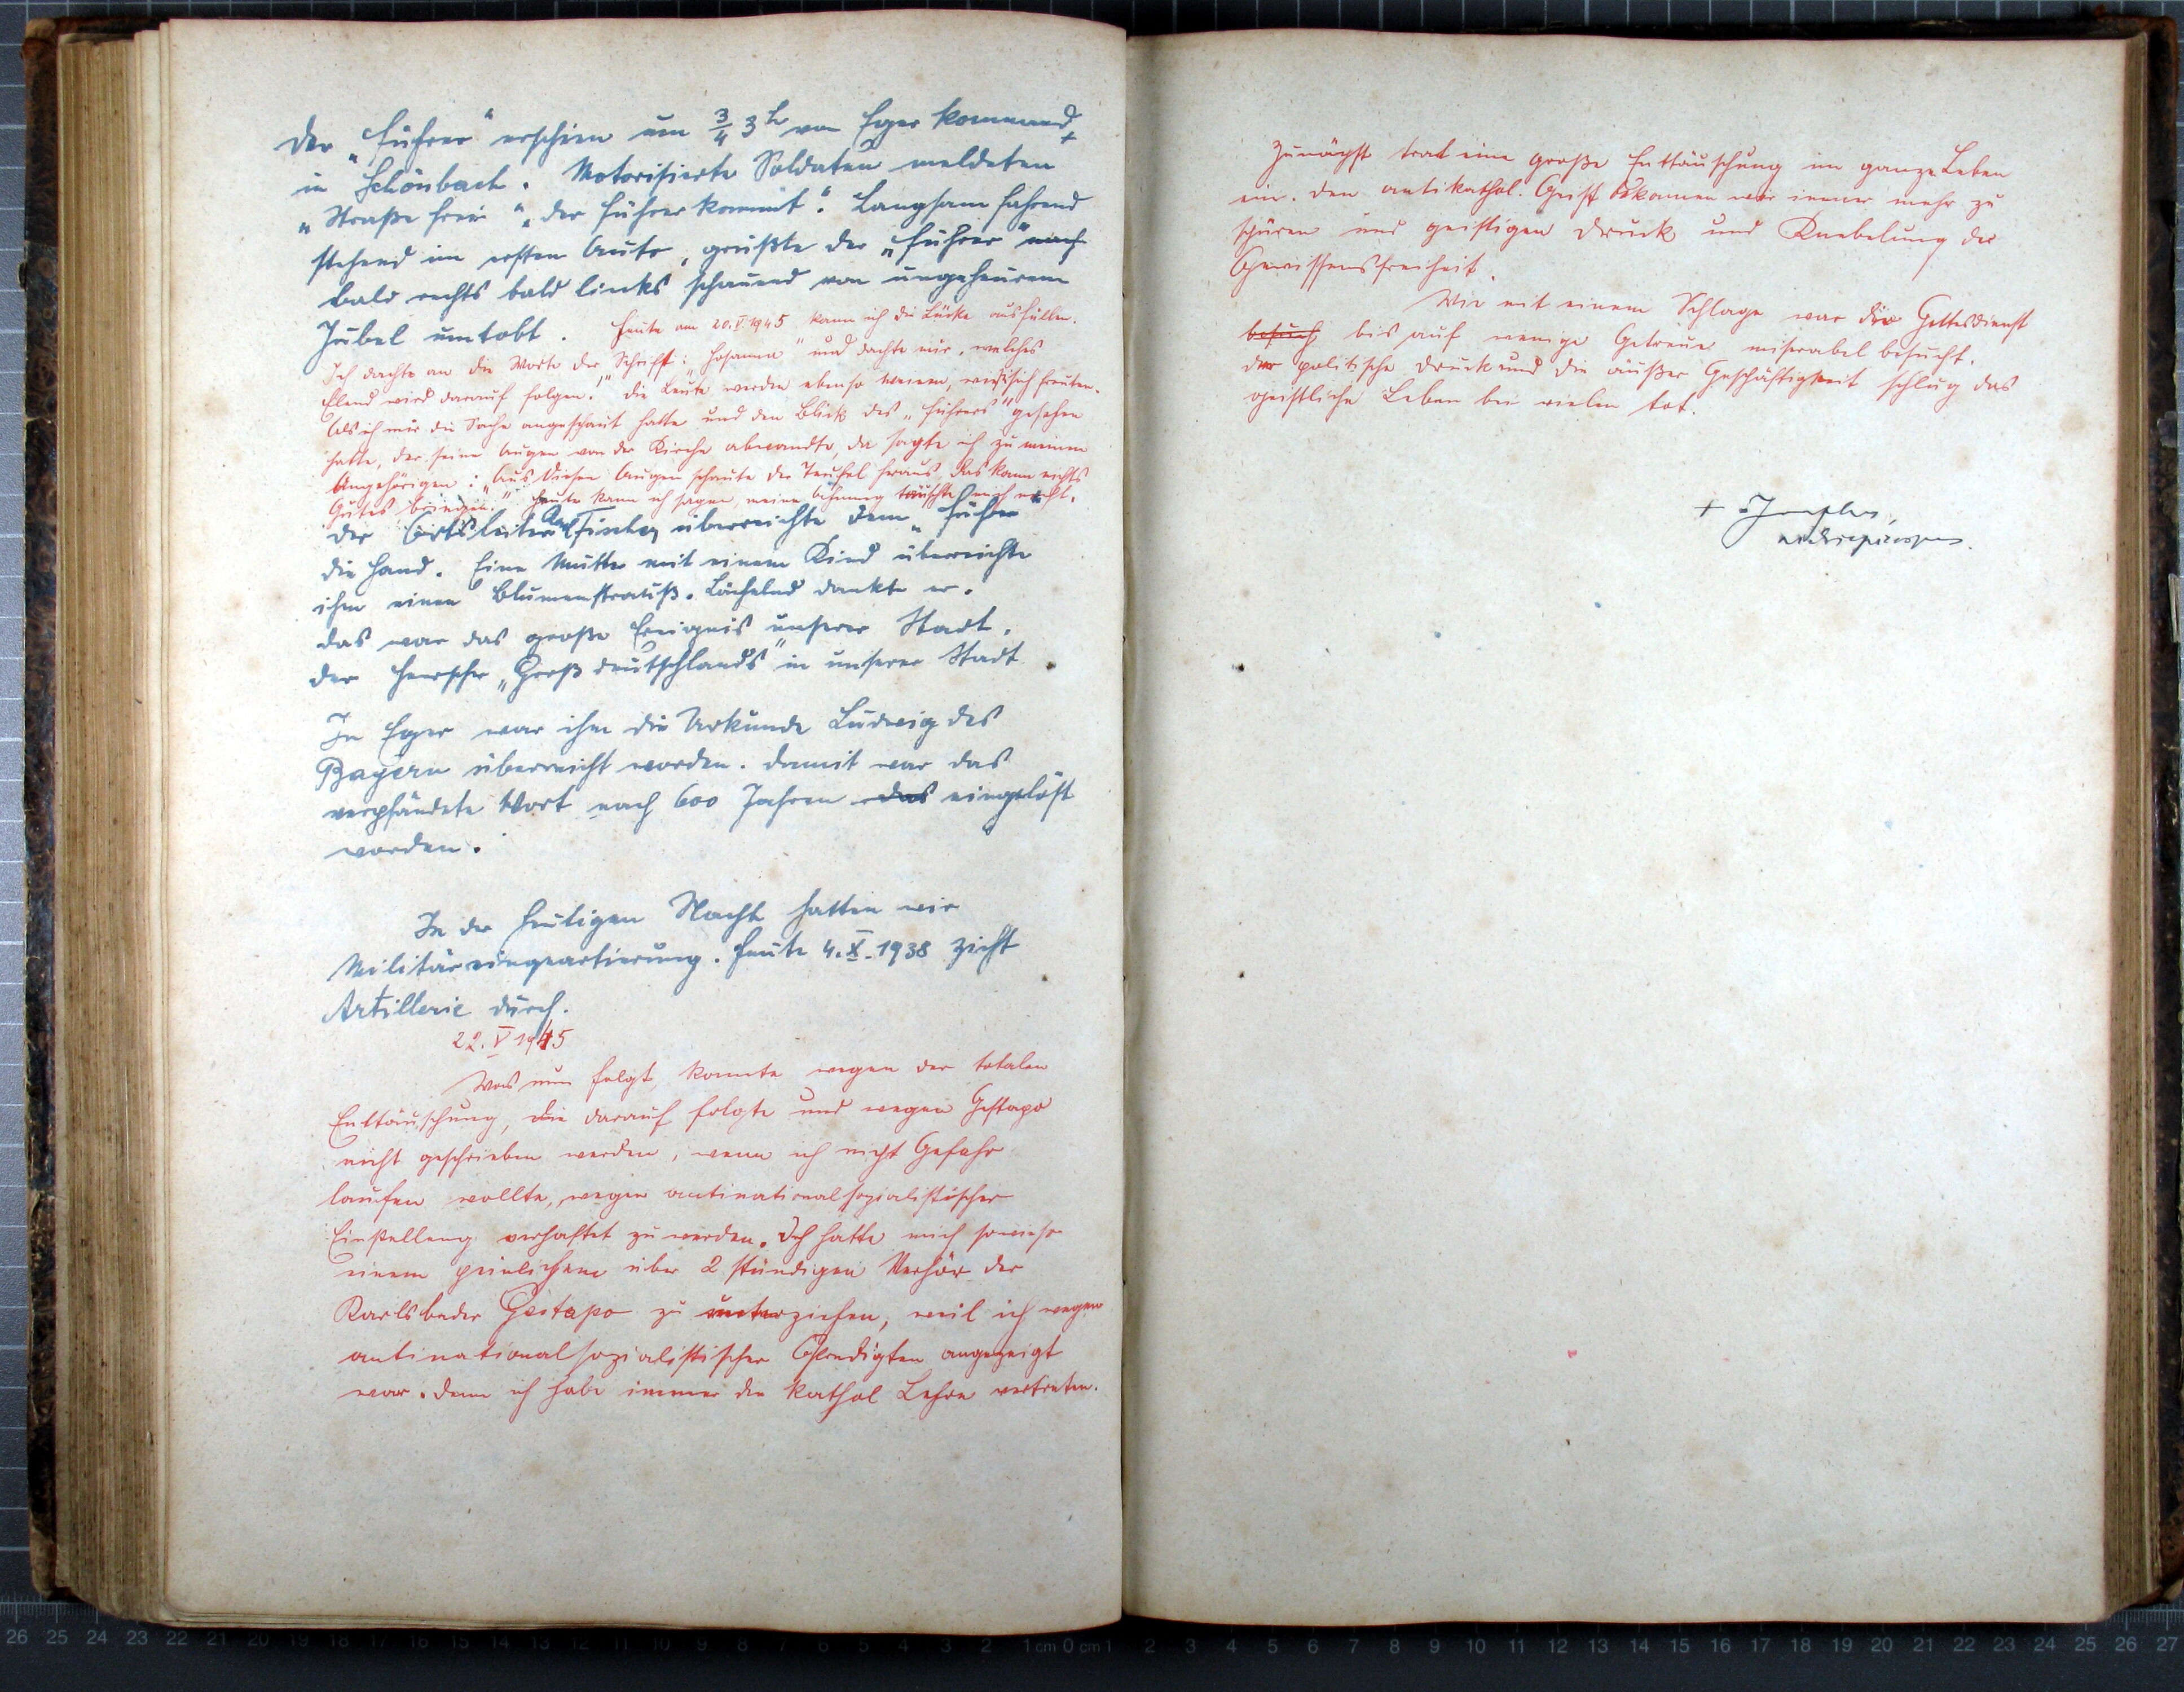 Der „Führer" erschien um 3/4 3h von Eger kommend
in Schönbach. Motorisierte Soldaten meldeten
„Straße frei" „der Führer kommt". Langsam fahrend
stehend im ersten Auto, grüßte der „Führer" nach
bald rechts bald links schauend von ungeheurem
Jubel umtobt. Heute am 20.V.1945 kann ich die Lücke ausfüllen.
Ich dachte an die Worte der Schrift: „Hosanna" und dachte mir, welches
Elend wird darauf folgen! Die Leute werden ebenso weinen, wie sie sich freuten.
Als ich mir die Sache angeschaut hatte und den Blick des „Führers" gesehen
hatte, der seine Augen von der Kirche abwandte, da sagte ich zu meinen
Angehörigen: „Aus diesen Augen schaute der Teufel heraus, das kann nichts
Gutes bringen." Heute kann ich sagen, meine Ahnung täuschte mich nicht.
Der Ortsleiter Karl Fischer überreichte dem „Führer"
die Hand. Eine Mutter mit einem Kind überreichte
ihm einen Blumenstrauß. Lächelnd dankte er.
Das war das große Ereignis unserer Stadt.
Der Herrscher „Großdeutschlands" in unserer Stadt.
In Eger war ihm die Urkunde Ludwig des
Bayern überreicht worden. Damit war das
verpfändete Wort nach 600 Jahren das eingelöst
worden.
In der heutigen Nacht hatten wir
Militäreinquartierung. Heute 4.X.1938 zieht
Artillerie durch.
22.V 1945
Was nun folgt, konnte wegen der totalen
Enttäuschung, die darauf folgte und wegen Gestapo
nicht geschrieben werden, wenn ich nicht Gefahr
laufen wollte, wegen antinationalsozialistischer
Einstellung verhaftet zu werden. Ich hatte mich sowieso
einem peinlichem über 2 stündigen Verhör der
Karlsbader Gestapo zu unterziehen, weil ich wegen
antinationalsozialistischer Predigten angezeigt
war. Denn ich habe immer die kathol Lehre vertreten.
Zunächst trat eine große Enttäuschung im ganze Leben
ein. Den antikathol. Geist bekamen wir immer mehr zu
spüren und geistigen Druck und Knebelung der
Gewissensfreiheit.
Wie mit einem Schlage war der Gottesdienst
besuch bis auf wenige Getreue miserabel besucht.
Der politische Druck und die äußere Geschäftigkeit schlug das
geistliche Leben bei vielen tot.